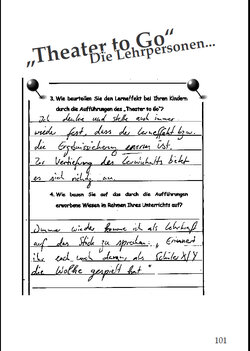 „Theater to Go"
Die Lehrpersonen...
3. Wie beurteilen Sie den Lerneffekt bei Ihren Kindern
durch die Aufführungen des „Theater to Go"?
Ich denke und stelle auch immer
wieder fest, dass der Lerneffekt bzw.
die Ergebnissicherung enorm ist.
Zur Vertiefung des Lerninhalts bietet
es sich richtig an.
4. Wie bauen Sie auf das durch die Aufführungen
erworbene Wissen in Rahmen Ihres Unterrichts auf?
Immer wieder komme ich als Lehrkraft
auf das Stück zu sprechen: „Erinnert
ihr euch noch daran, als Schüler X/Y
die Wolke gespielt hat."
101